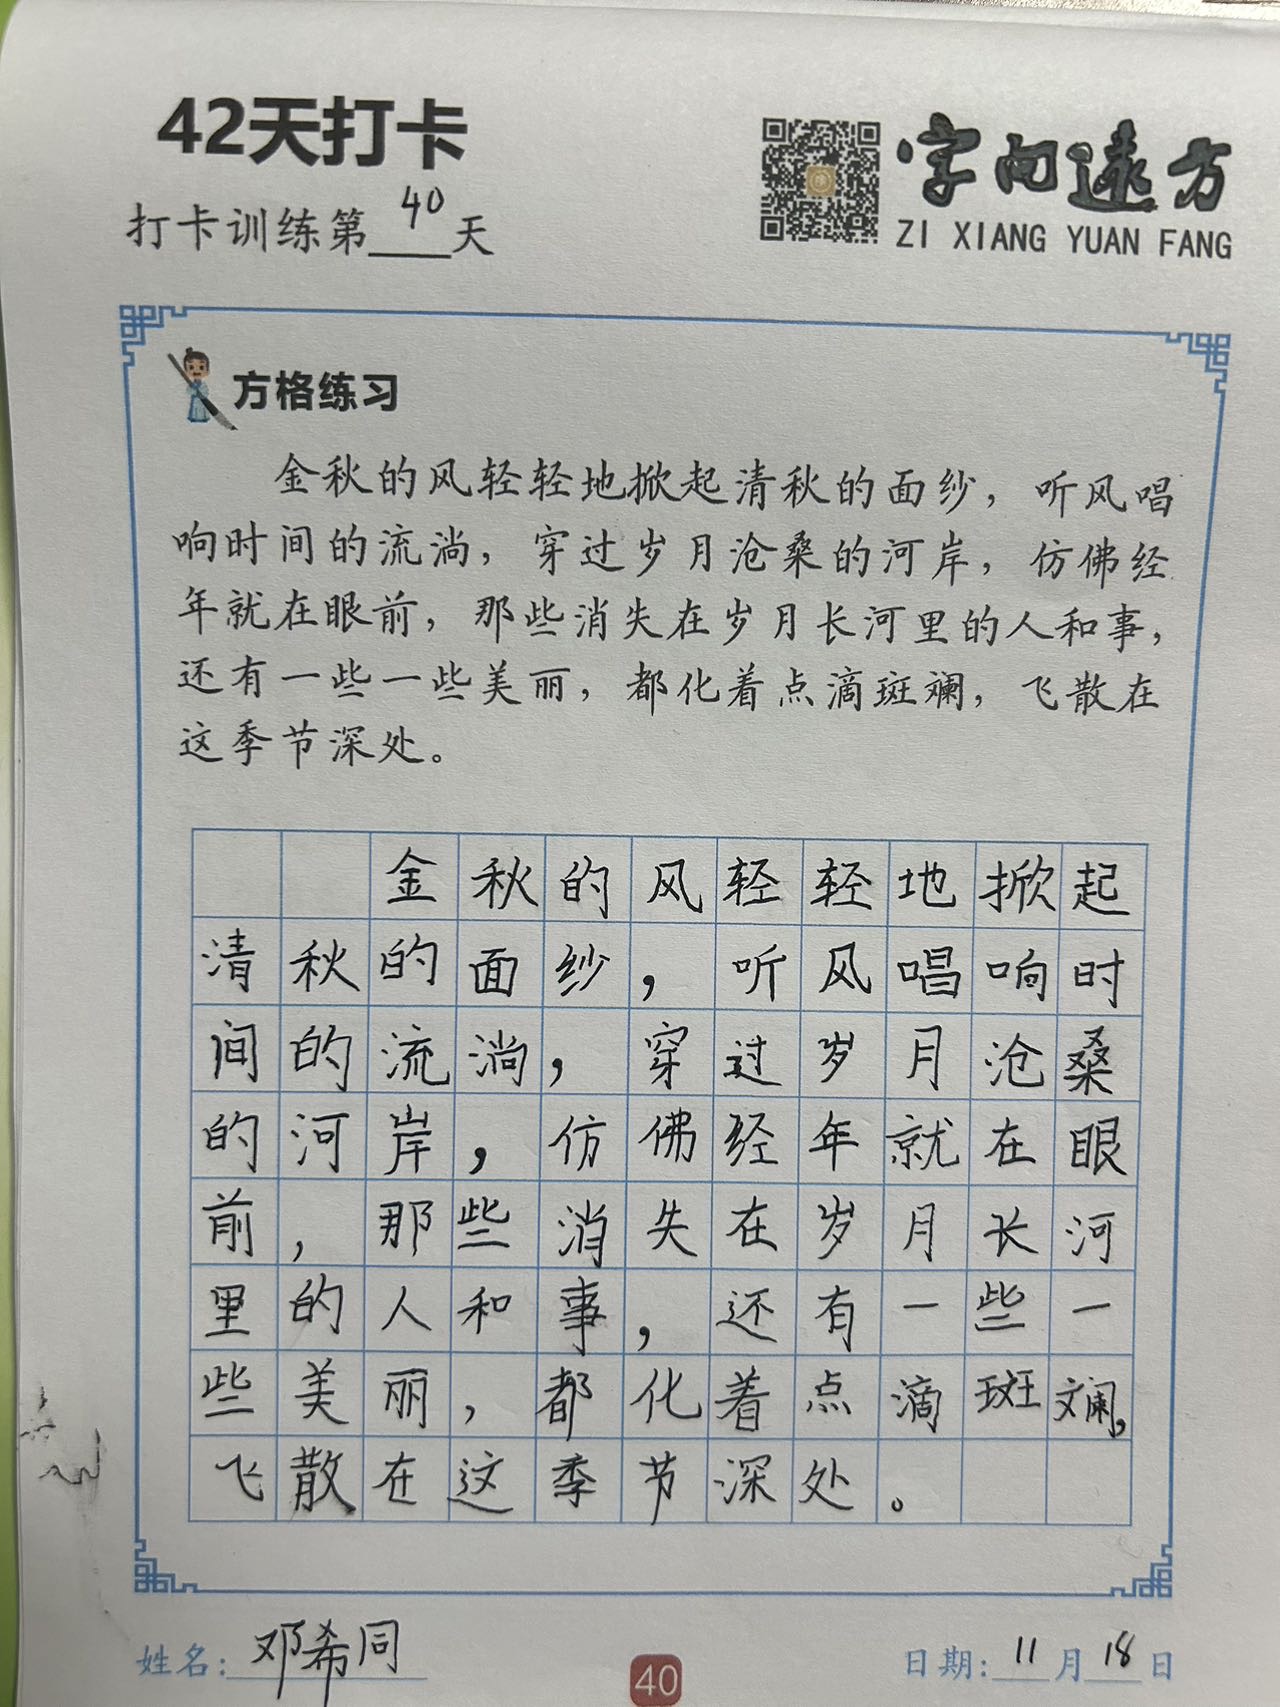 42天打卡
字向远方
ZI XIANG YUAN FANG
打卡训练第40天
方格练习
金秋的风轻轻地掀起清秋的面纱，听风唱
响时间的流淌，穿过岁月沧桑的河岸，仿佛经
年就在眼前，那些消失在岁月长河里的人和事，
还有一些一些美丽，都化着点滴斑斓，飞散在
这季节深处。
金秋的风轻轻地掀起
清秋的面纱，听风唱响时
间的流淌，穿过岁月沧桑
的河岸，仿佛经年就在眼
前，那些消失在岁月长河
里的人和事，还有一些一
些美丽，都化着点滴斑斓，
飞散在这季节深处。
姓名：邓希同
40
日期：11月18日